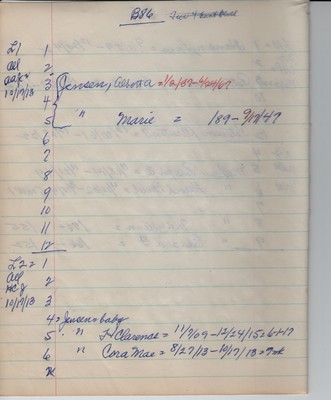 B86
L1 1
all 2
3 Jensen, Alberta = 1/2/87-6/24/67
10/17/13 4
5 " Marie = 189-9/17/47
6
7
8
9
10
11
12
L2 = 1
all 2
10/17/13 3
4 = Jensen = baby
5 " F Clarence = 11/7/09-12/24/15=6+17
6 " Cora Mae = 8/27/13-10/17/13=